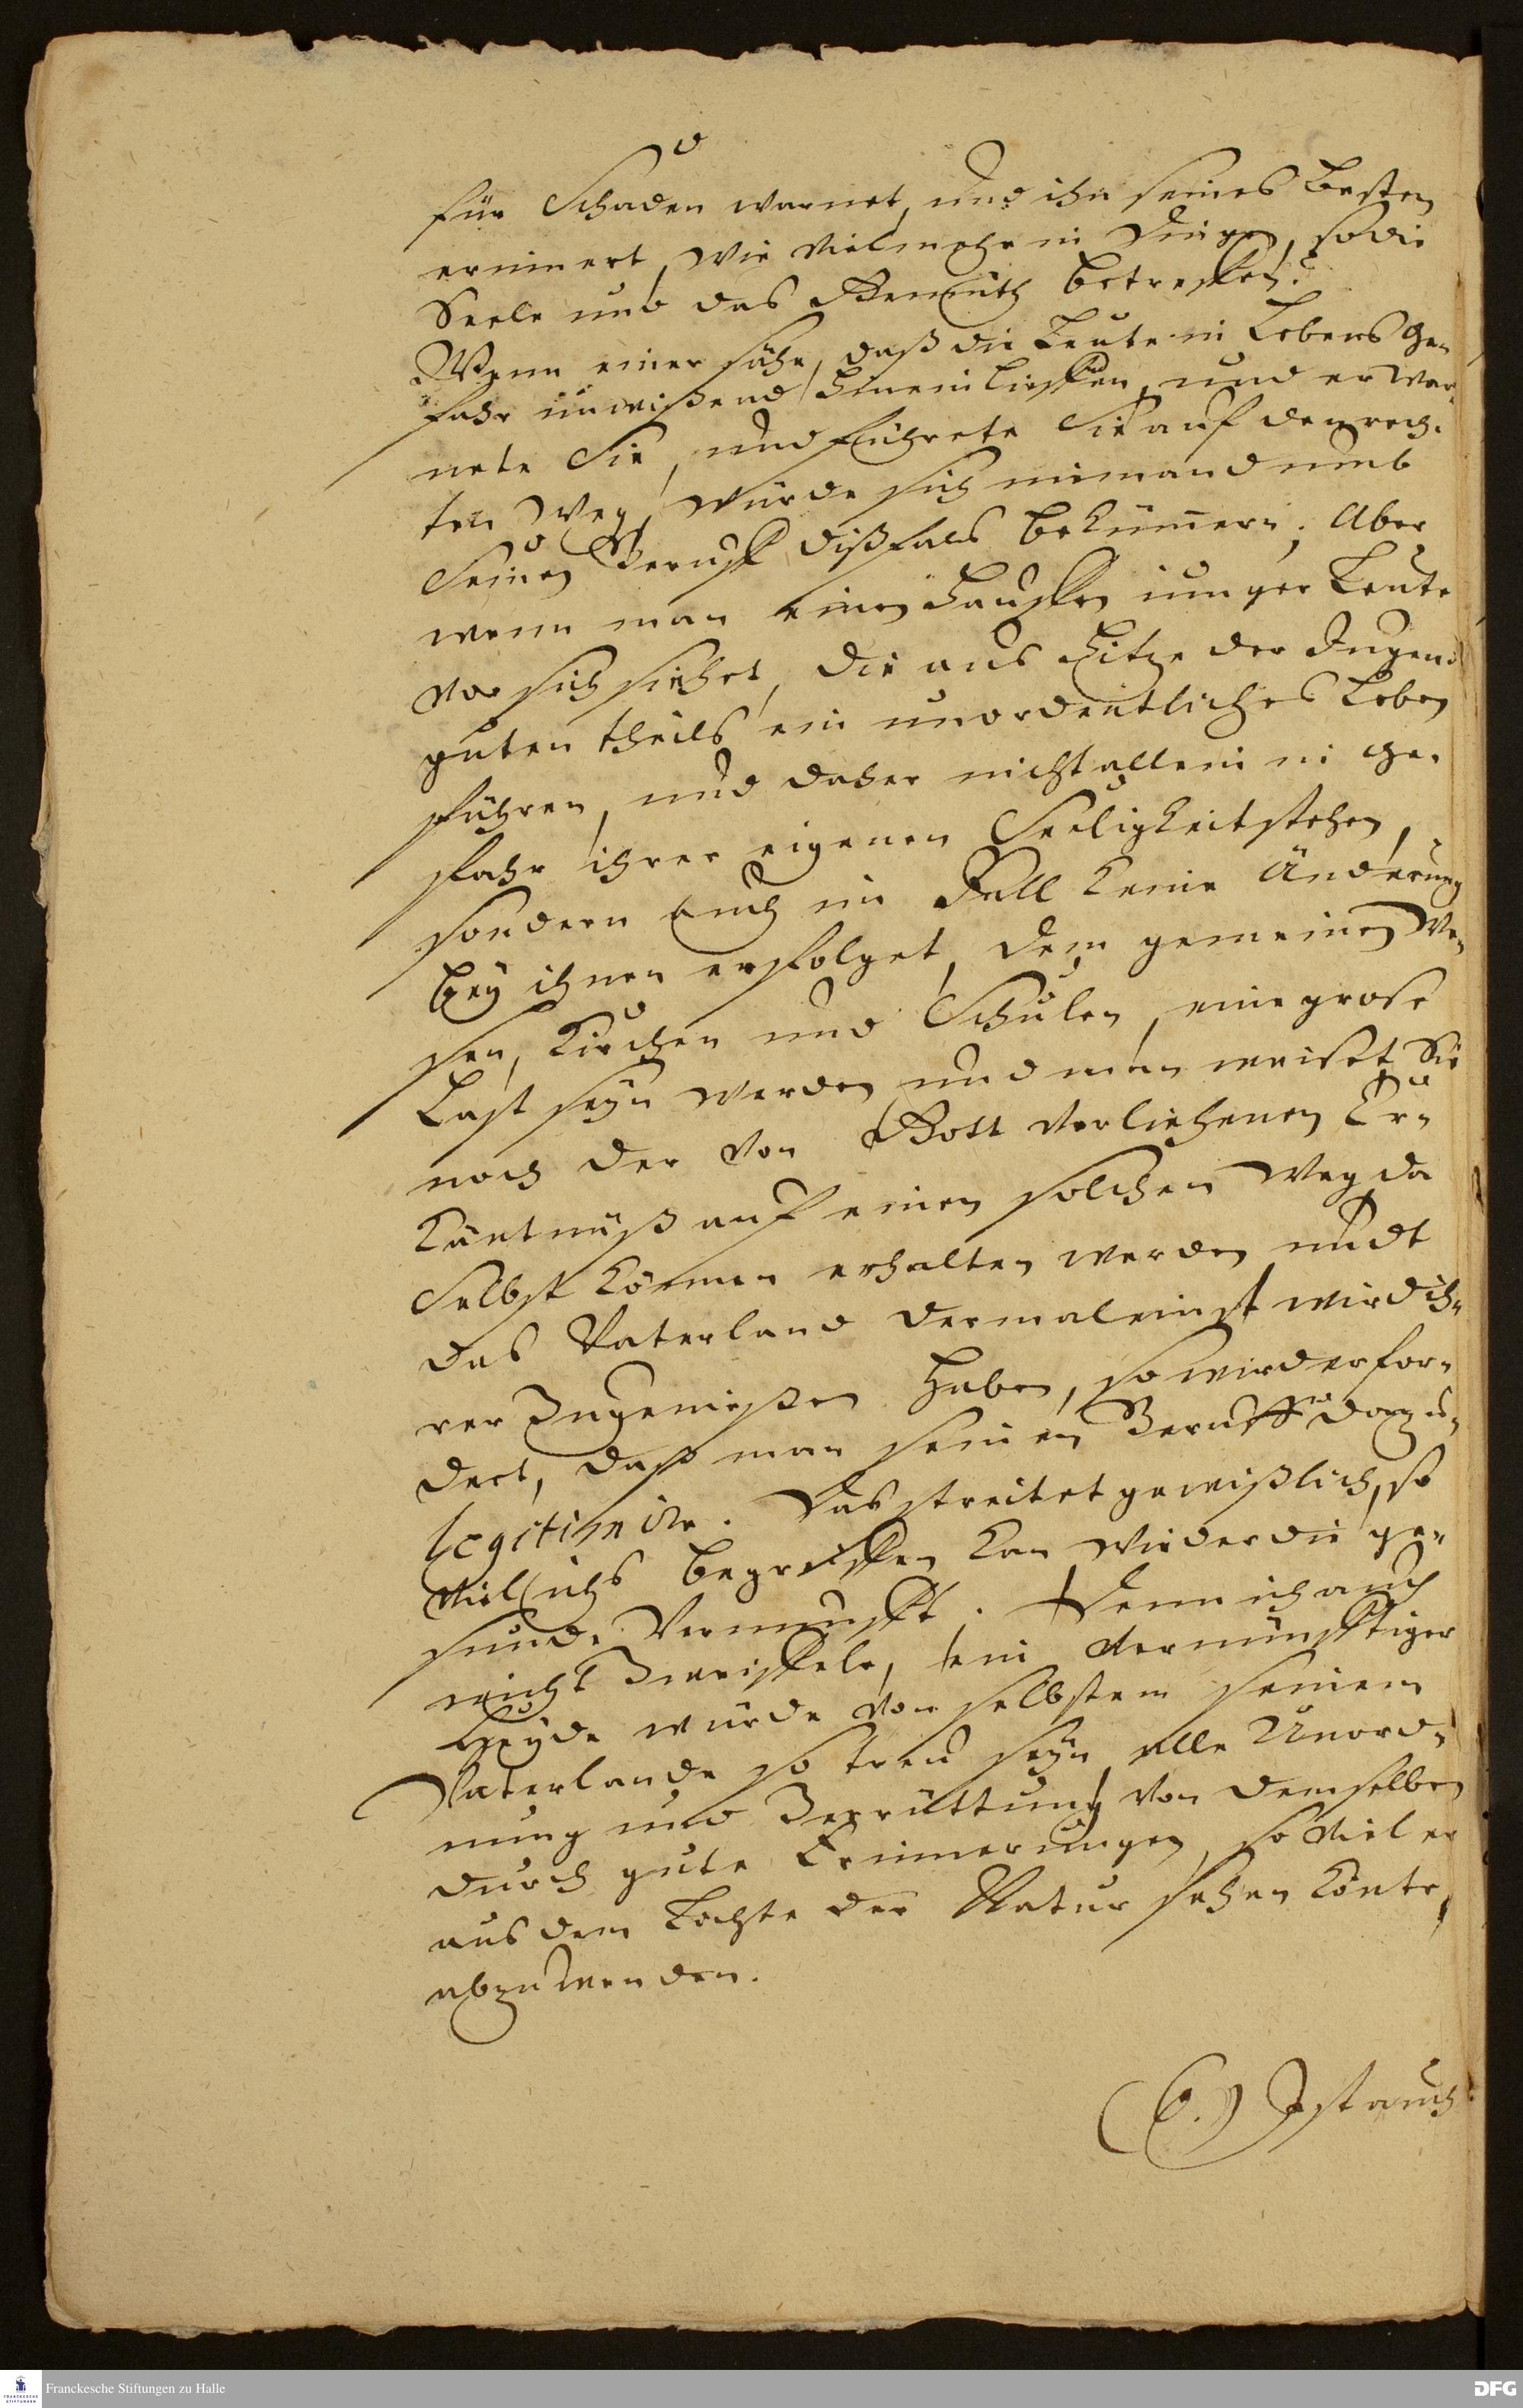 für Schaden warnet, und ihn seines besten
erinnert, wie vielmehr in Dingen, so die
Seele und das Gemüth betreffen?
Wenn einer sähe, daß die Leute in Lebens Ge-
fahr unwißend hinein lieffen, und er war-
nete Sie, und führete Sie auf den rech-
ten Weg, würde sich niemand umb
Seinen Beruff dißfals bekümern. Aber
wenn man einen Hauffen iunger Leute
vor sich siehet, die aus Hitze der Jugend
guten theils ein unordentliches Leben
führen, und daher nicht allein in Ge-
fahr ihrer eigenen Seeligkeit stehen,
sondern auch im Fall keine Änderung
bey ihnen erfolget, dem gemeinen We-
sen, Kirchen und Schulen, eine grose
Last seyn werden, und man weiset Sie
nach der von Gott verliehenen Er-
käntnüß auf einen solchen Weg, da
Selbst können erhalten werden, und
das Vaterland dermaleinst wird ih-
rer Zugenießen haben, so wird erfor-
dert, daß man seinen Beruff dazu
legitimire. Das streitet gewißlich, so
viel ichs begreiffen kan, wieder die ge-
sunde Vernunfft. Denn ich auch
nicht Zweiffele, ein vernünfftiger
Heyde würde von selbsten seinem
Vaterlande so treu seyn, alle Unord-
nung und Zerrüttung von demselben
durch gute Erinnerungen, so viel er
aus dem Lichte der Natur sehen könte,
abzuwenden.
(6.) Ist auch
Franckesche Stiftungen zu Halle
DFG